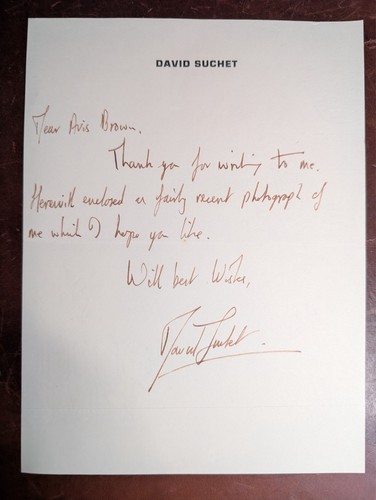 DAVID SUCHET
Dear Avis Brown,
Thank you for writing to me.
Herewith enclosed a fairly recent photograph of
me which I hope you like.
With best Wishes,
David Suchet.